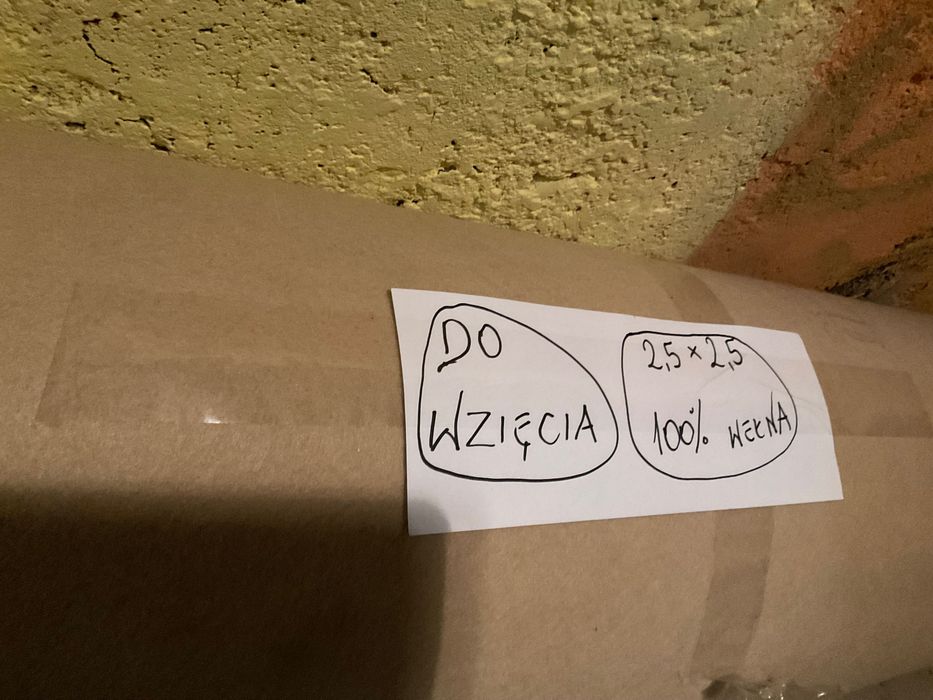 DO
WZIĘCIA
2,5 × 2,5
100% WEŁNA